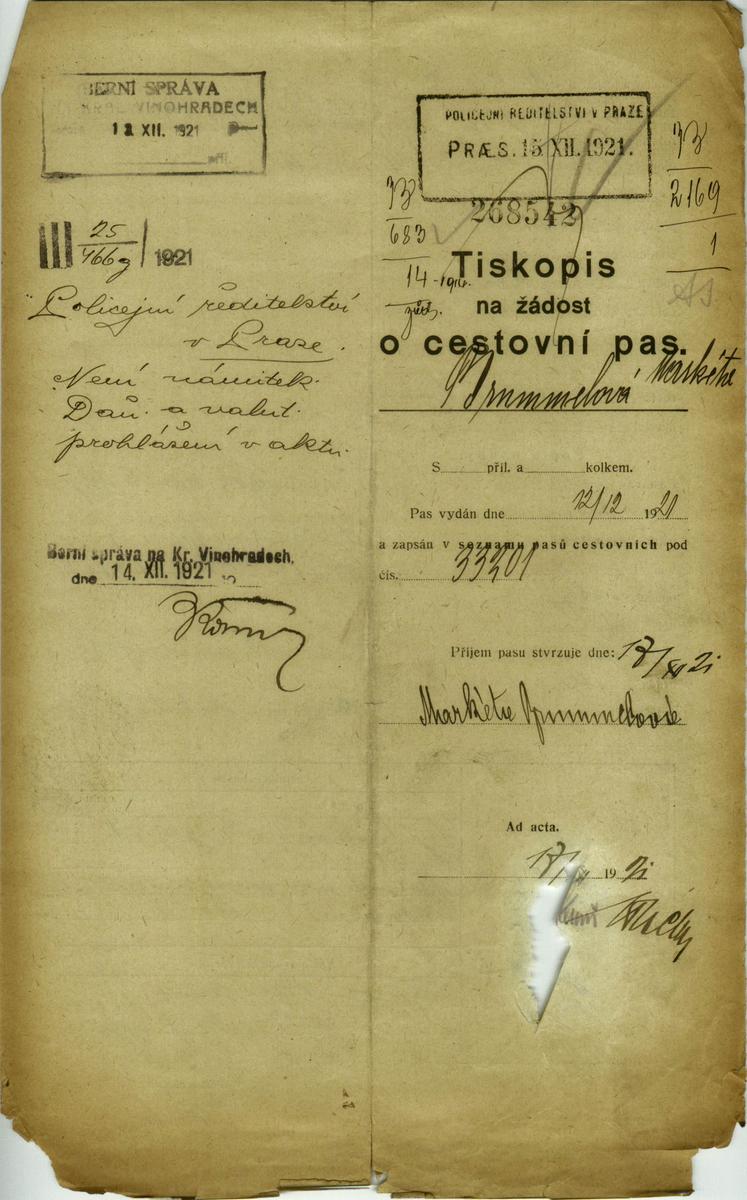 BERNÍ SPRÁVA
KRÁL. VINOHRADECH
13 XII. 1921
III 25/466g 1921
Policejní ředitelství
v Praze.
Není námitek.
Daň. a valut.
prohlášení v aktu.
Berní správa na Kr. Vinohradech,
dne 14. XII. 1921
POLICEJNÍ ŘEDITELSTVÍ V PRAZE
PRÆS. 15 XII. 1921.
268542
683
14
2169
1
Tiskopis
na žádost
o cestovní pas.
Brummelová Markéta
S příl. a kolkem.
Pas vydán dne 12/12 1921
a zapsán v seznamu pasů cestovních pod
čís. 33201
Příjem pasu stvrzuje dne: 17/XII 21
Markéta Brummelová
Ad acta.
17/XII 1921